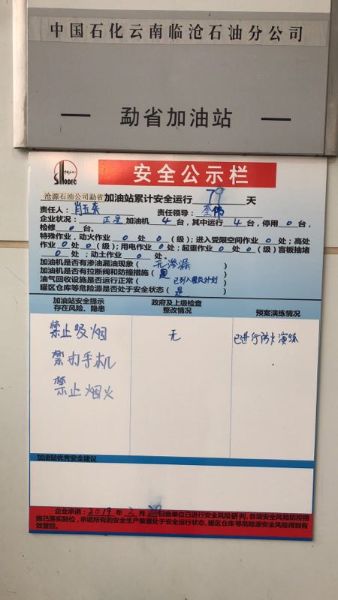 中国石化云南临沧石油分公司
勐省加油站
SINOPEC
安全公示栏
沧源石油公司勐省加油站累计安全运行 79 天
责任人: 责任领导:
企业状况: 正常 加油机 4 台,其中运行 4 台,停用 0 台,
检修 0 台。
特殊作业,动火作业 0 处 0 (级);进入受限空间作业 0 处;高处
作业 0 处 0 (级);用电作业 0 处;起重作业 0 处 0 (级);盲板抽堵
0 处;动土作业 0 处。
加油机是否有渗油漏油现象( 无渗漏 )
加油机是否有拉断阀和防撞措施( )
油气回收设施是否运行正常( 已列入 计划 )
罐区仓库等危险源是否处于安全状态( 是 )
加油站安全提示 政府及上级检查 预案演练情况
存在风险、隐患 整改情况
禁止吸烟 无 已进行消火演练
禁打手机
禁止烟火
加油站优秀安全建议
企业承诺:2019年